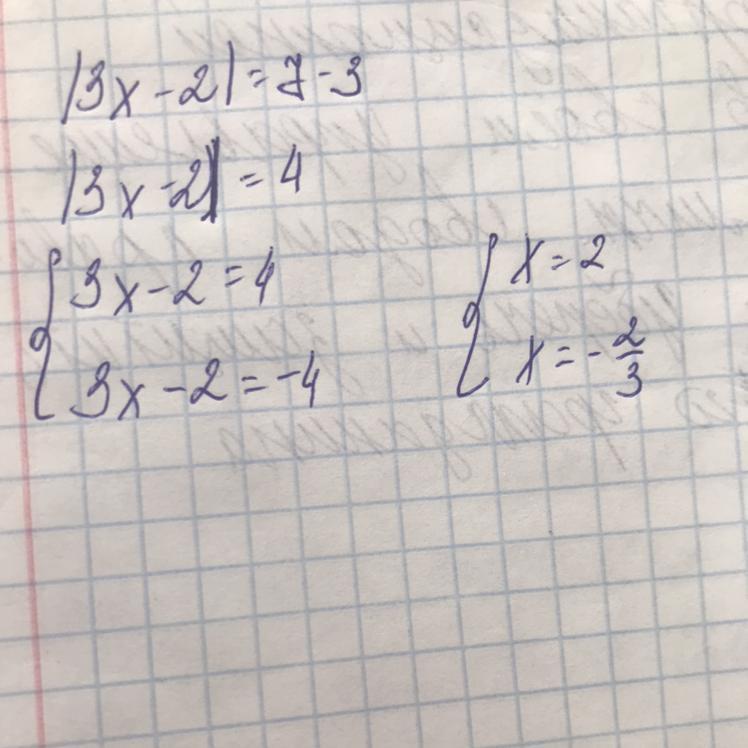 |3x-2|=7-3
|3x-2|=4
{3x-2=4
3x-2=-4
{x=2
x=-2/3